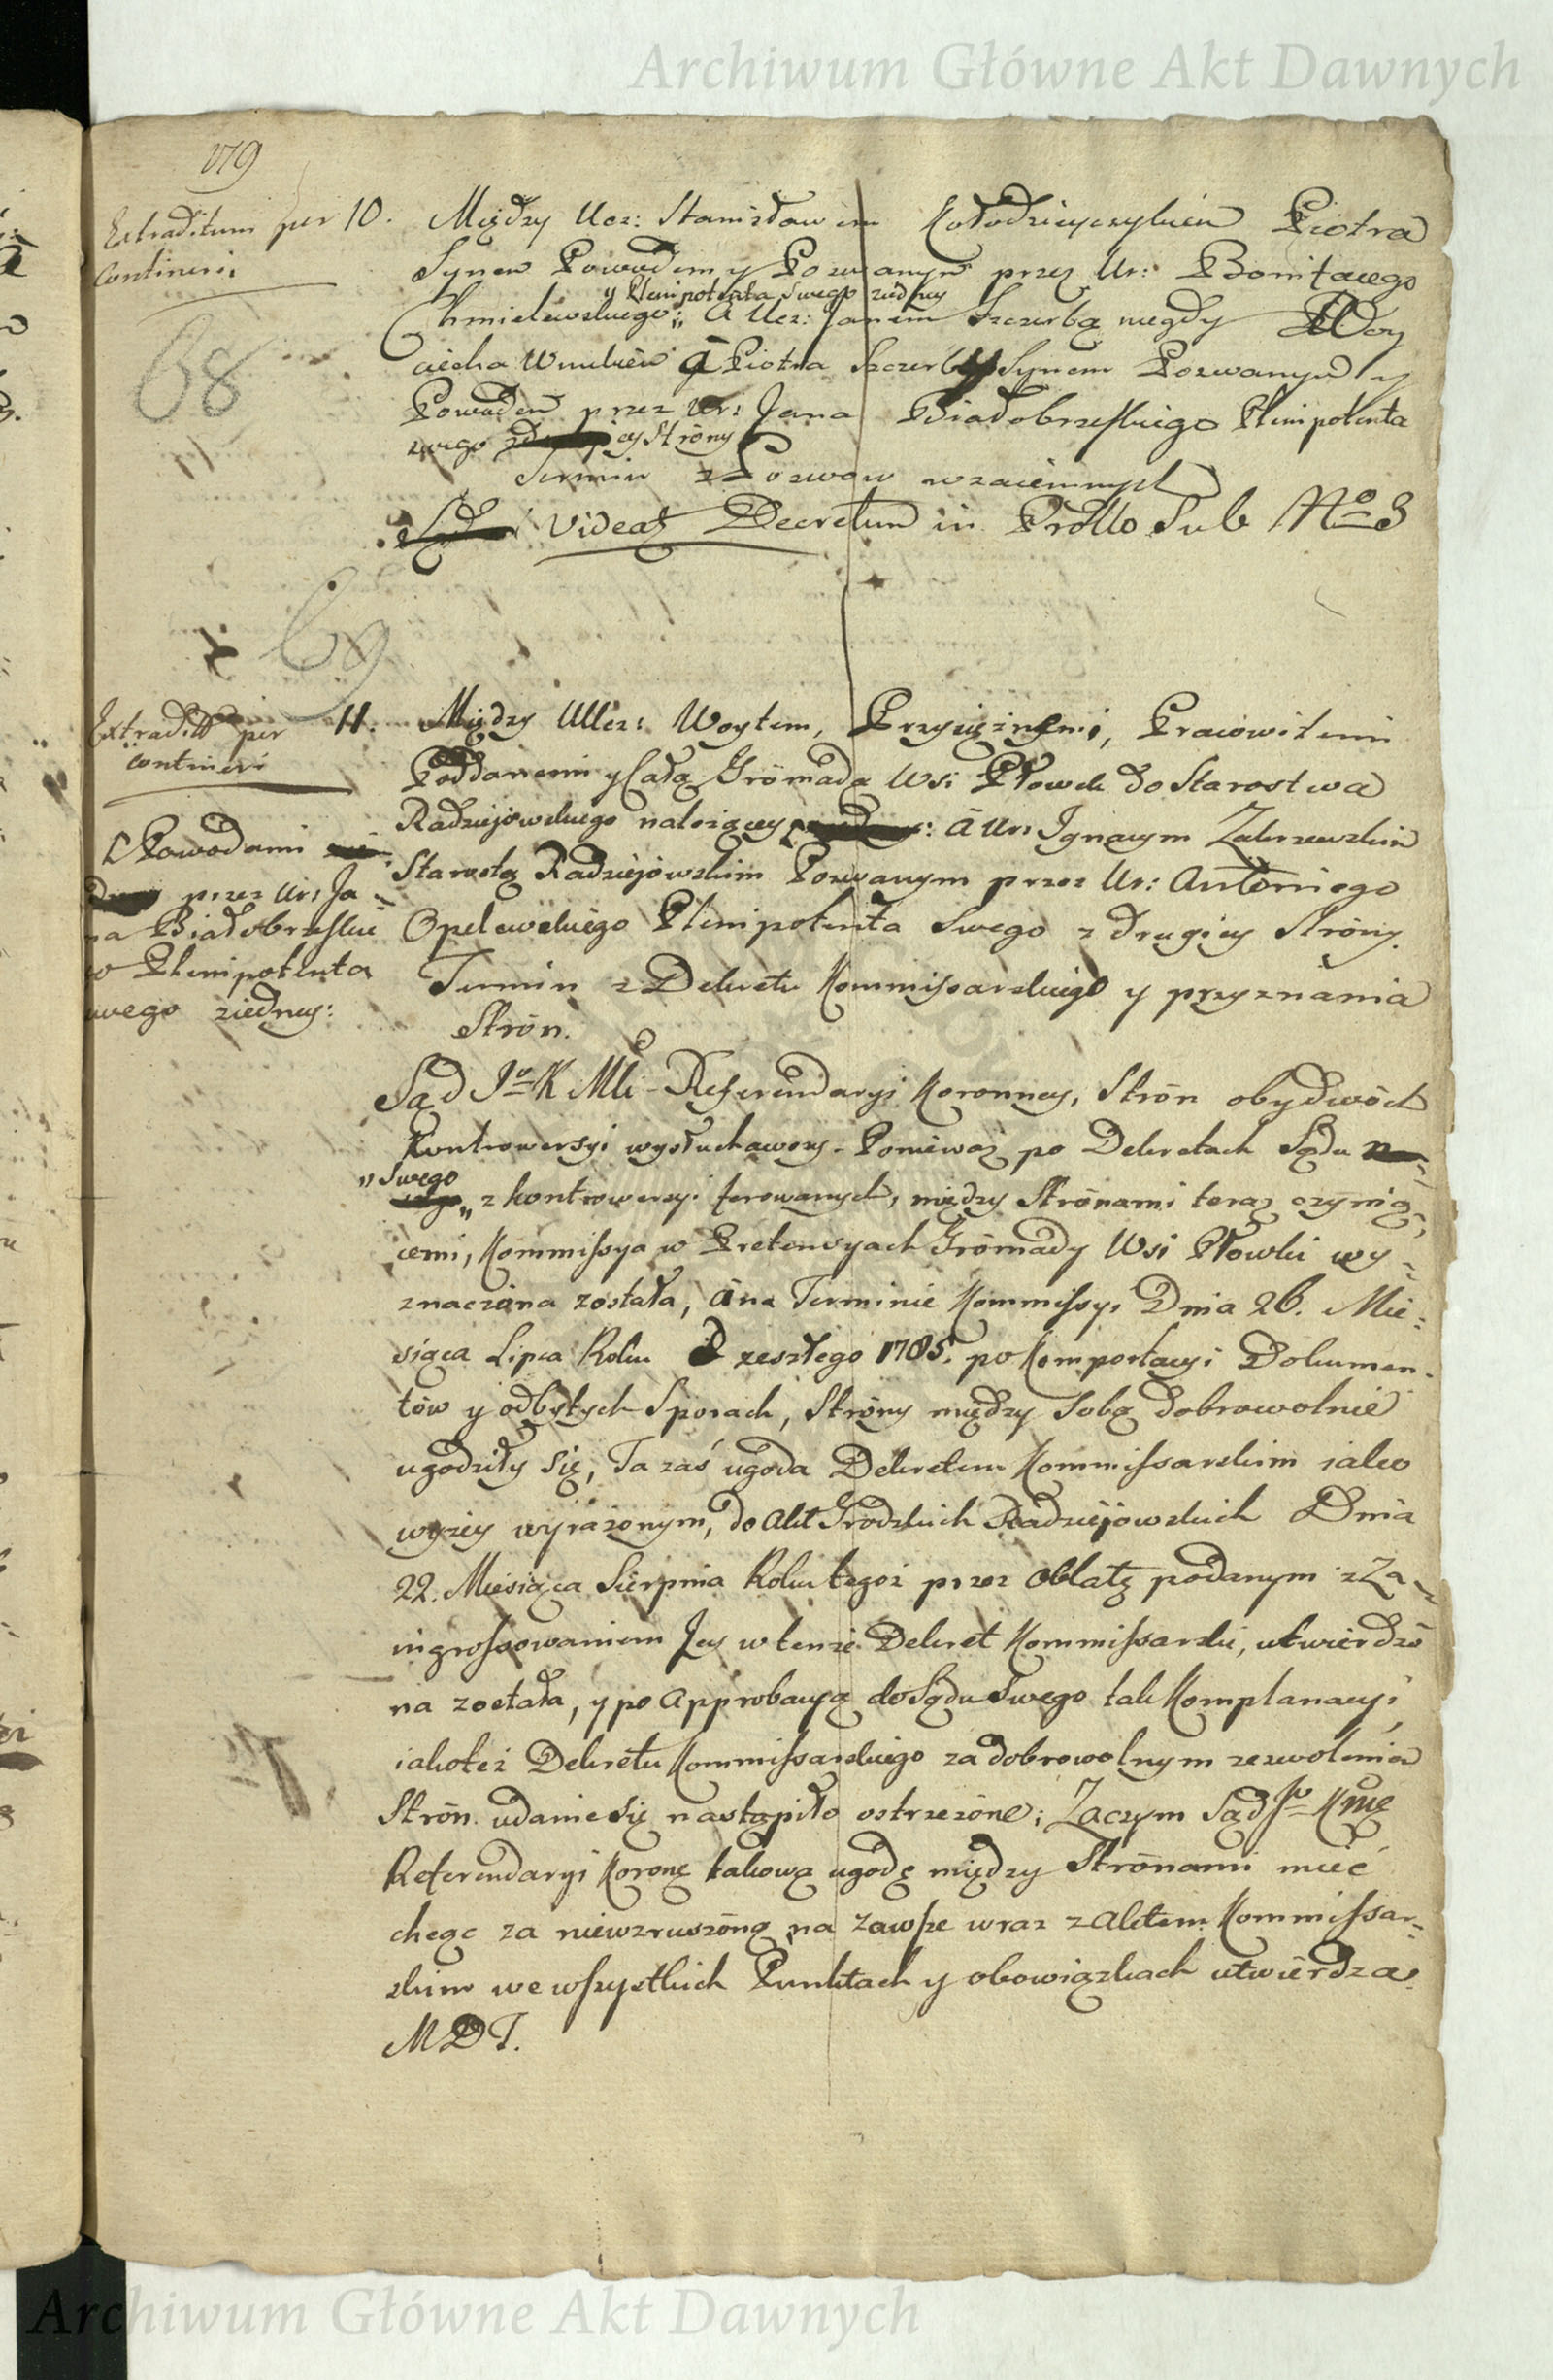 Archiwum Główne Akt Dawnych
179
Extraditum per
Contineri.
68
10. Między Ucz: Stanisławem Kołodzieyczykiem Piotra
Synem Powodem y Pozwanym przez Ur: Bonifacego
y Plenipotenta Swego z iedney
Chmielewskiego: „ A Ucz: Janem Szczerbą niegdy Woy
ciecha Wnukiem a Piotra Szczerby Synem Pozwanym y
Powodem przez Ur: Jana Białobrzeskiego Plenipotenta
swego ey Strony
Termin z Pozwow wzaiemnych
Videat Decretum in Prottlo Sub No 3
69
Extradittt per
contineri
11. Między Ucz: Woytem, Przysiężnemi, Pracowitemi
Poddanemi y Całą Gromadą Wsi Płowek do Starostwa
Radziejowskiego należącey : A Ur: Ignacym Zakrzewskim
Starostą Radziejowskim Pozwanym przez Ur: Antoniego
Opelewskiego Plenipotenta Swego z drugiey Strony.
Termin z Dekretu Kommissarskiego y przyznania
Stron.
Powodami
przez Ur: Ja
na Białobrzeskie
o Plenipotenta
swego z iedney:
Sąd Jo K Mci Referendaryi Koronney, Stron obydwóch
Kontrowersyi wysłuchawszy. Ponieważ po Dekretach Sądu
„ Swego
„ z kontrowersyi ferowanych, między Stronami teraz czynią
cemi, Kommissya w Pretensyach Gromady Wsi Płowki wy
znaczona została, a na Terminie Kommissyi Dnia 26. Mie
siąca Lipca Roku zeszłego 1785. po Komportacyi Dokumen
tów y odbytych Sporach, Strony między Sobą dobrowolnie
ugodziły się, Ta zaś ugoda Dekretem Kommissarskim iako
wyżey wyrażonym, do Akt Grodzkich Radziejowskich Dnia
22. Miesiąca Sierpnia Roku tegoż przez Oblatę podanym z Za
ingrossowaniem Jey w tenże Dekret Kommissarski, utwierdzo
na została, y po Approbacyą do Sądu Swego tak Komplanacyi,
iakoteż Dekretu Kommissarskiego za dobrowolnym zezwoleniem
Stron udanie się nastąpiło ostrzeżone; Zaczym Sąd Jo K Mci
Referendaryi Koronę takową ugodę między Stronami mieć
chcąc za niewzruszoną na zawsze wraz z Aktem Kommissar
skim we wszystkich Punktach y obowiązkach utwierdza.
M D T.
Archiwum Główne Akt Dawnych